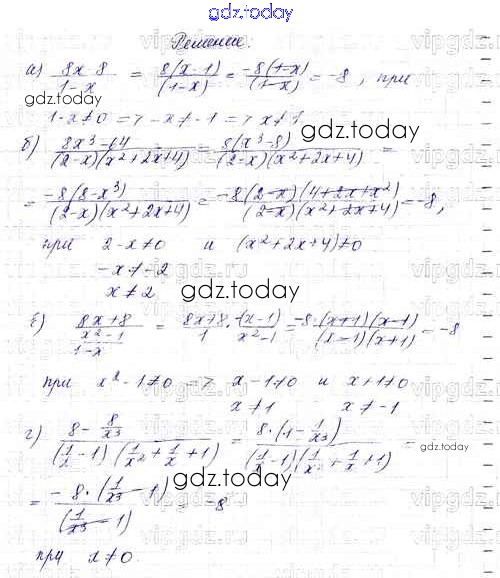 gdz.today
Решение.
а) (8x-8)/(1-x) = 8(x-1)/(1-x) = -8(1-x)/(1-x) = -8, при
gdz.today
1-x≠0 => -x≠-1 => x≠1
б) (8x³-64)/((2-x)(x²+2x+4)) = 8(x³-8)/((2-x)(x²+2x+4)) =
gdz.today
= -8(8-x³)/((2-x)(x²+2x+4)) = -8(2-x)(4+2x+x²)/((2-x)(x²+2x+4)) = -8,
при 2-x≠0 и (x²+2x+4)≠0
-x≠-2
x≠2
gdz.today
в) (8x+8)/((x²-1)/(1-x)) = (8x+8)/1 · (x-1)/(x²-1) = -8·(x+1)(x-1)/((x-1)(x+1)) = -8
при x²-1≠0 => x-1≠0 и x+1≠0
x≠1 x≠-1
г) (8 - 8/x³)/((1/x - 1)(1/x² + 1/x + 1)) = 8·(1 - 1/x³)/((1/x - 1)(1/x² + 1/x + 1)) =
gdz.today
gdz.today
= -8·(1/x³ - 1)/(1/x³ - 1) = -8
при x≠0.
gdz.today